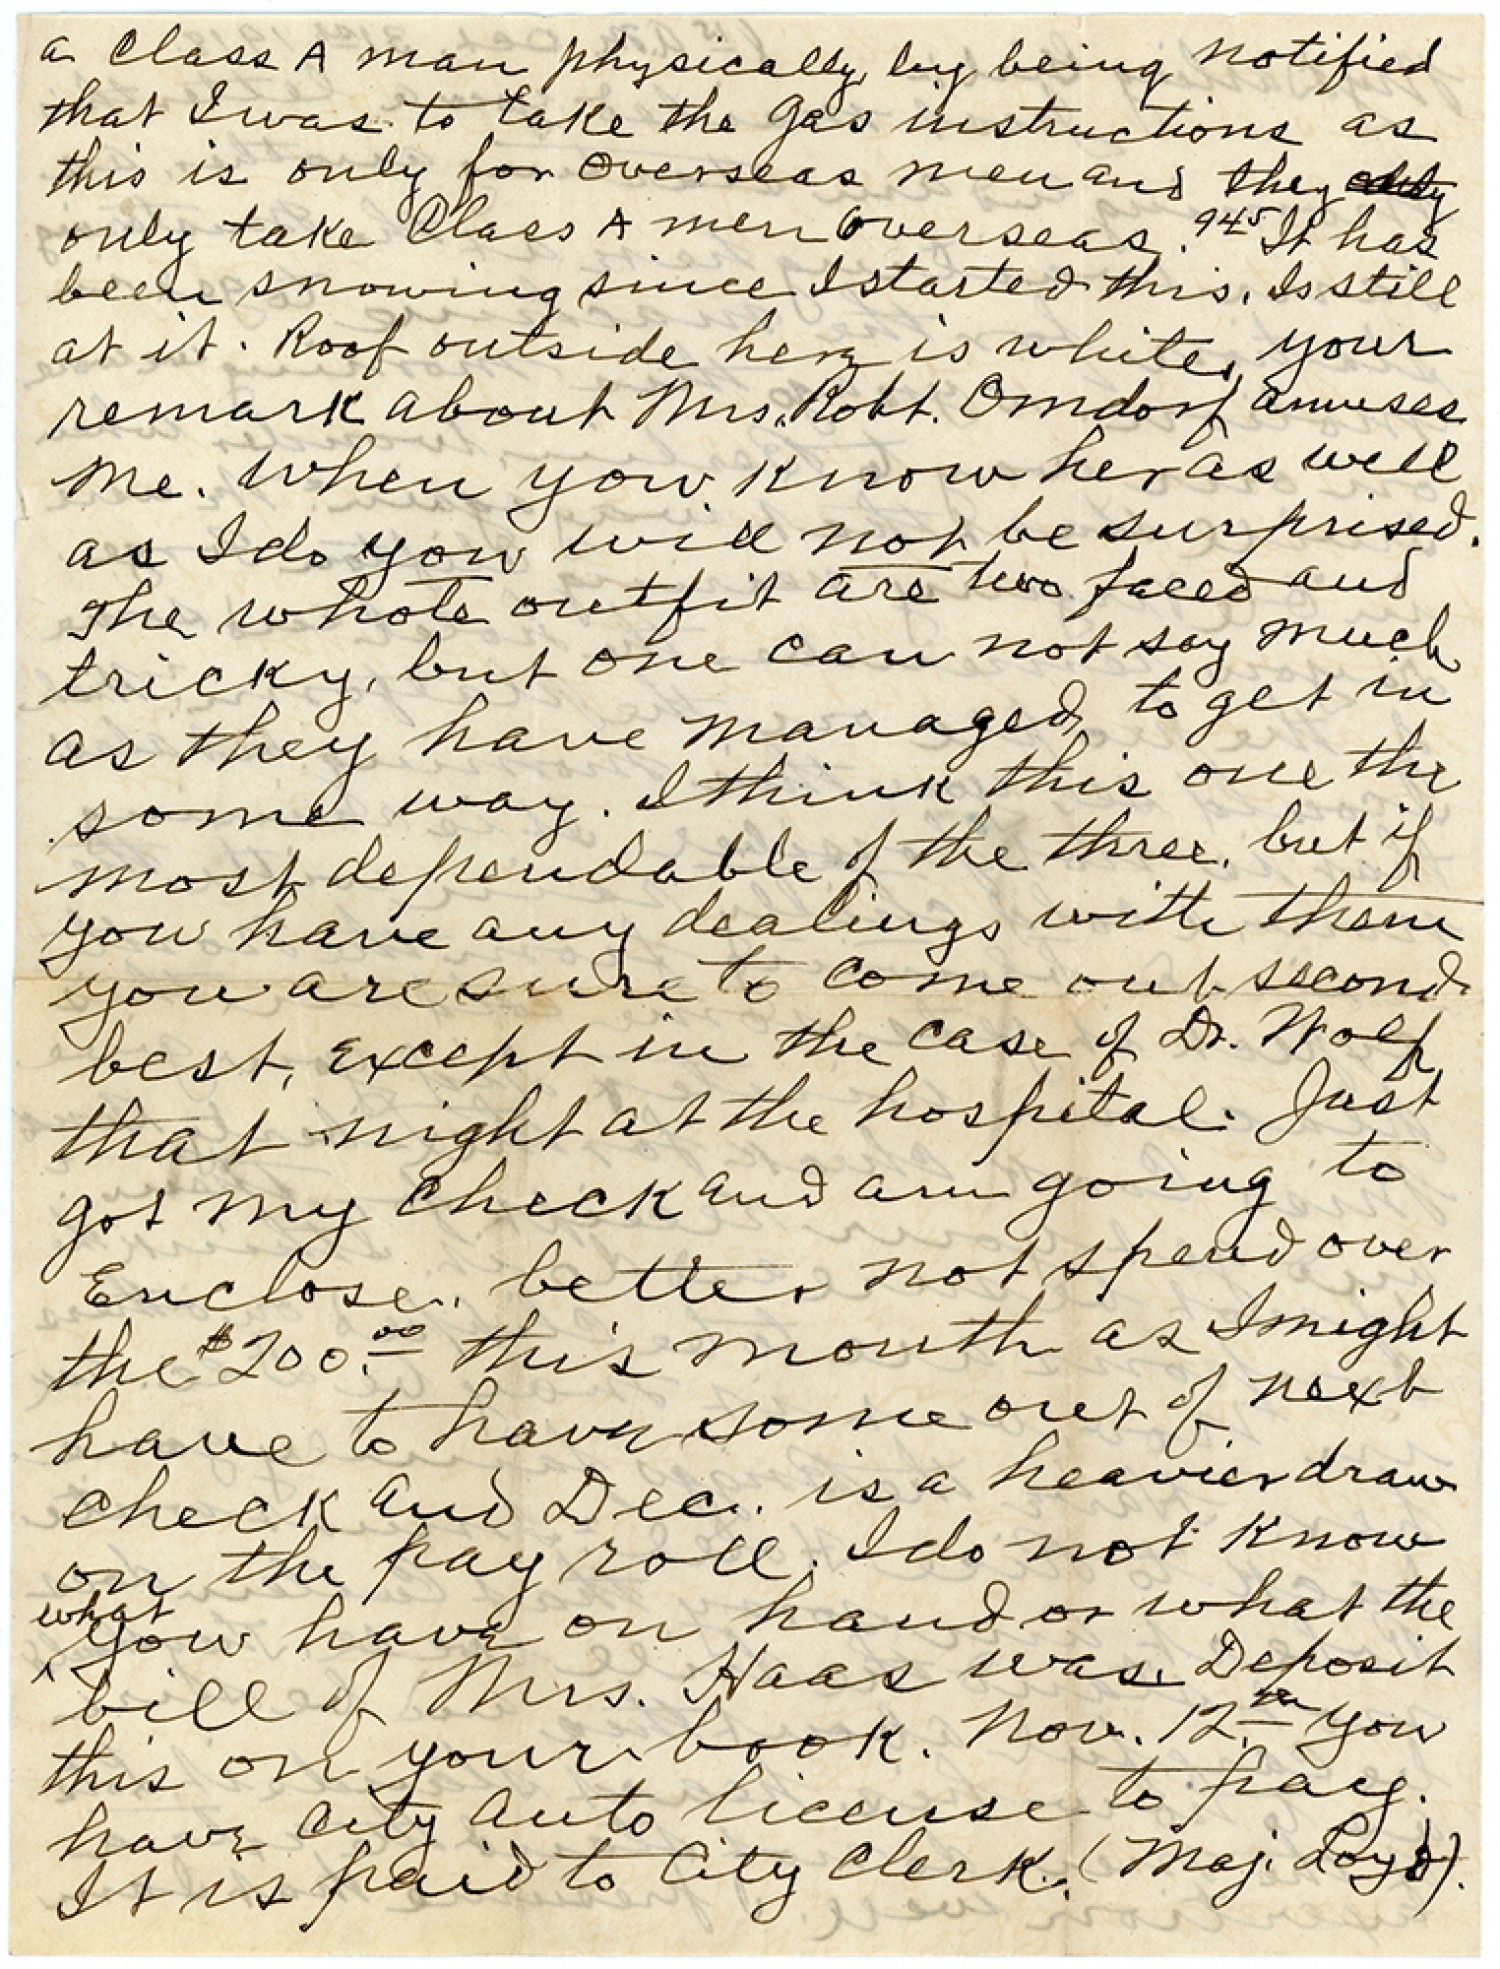 a Class A man physically by being notified
that I was to take the gas instructions as
this is only for overseas men and they only
only take Class A men overseas. 945 It has
been snowing since I started this. Is still
at it. Roof outside here is white, your
remark about Mrs. Robt. Omdorf amuses
me. When you know her as well
as I do you will not be surprised.
The whole outfit are two faced and
tricky, but one can not say much
as they have managed to get in
some way. I think this one the
most dependable of the three. but if
you have any dealings with them
you are sure to come out second
best, except in the case of Dr. Wolf
that night at the hospital. Just
got my check and am going to
Enclose. better not spend over
the $200.00 this month as I might
have to have some out of next
check and Dec. is a heavier draw
on the pay roll. I do not know
what you have on hand or what the
bill of Mrs. Haas was. Deposit
this on your book. Nov. 12th you
have City Auto license to pay.
It is paid to City Clerk. (Maj. Loyd).